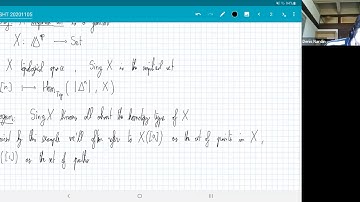 SHT 20201105
X : Δ^op → Set
X topological space, Sing X is the simplicial set
[n] ↦ Hom_Top (|Δ^n|, X)
Sing X knows all about the homotopy type of X
by this example we'll often refer to X([0]) as the set of points in X,
([1]) as the set of paths
Denis Nardin